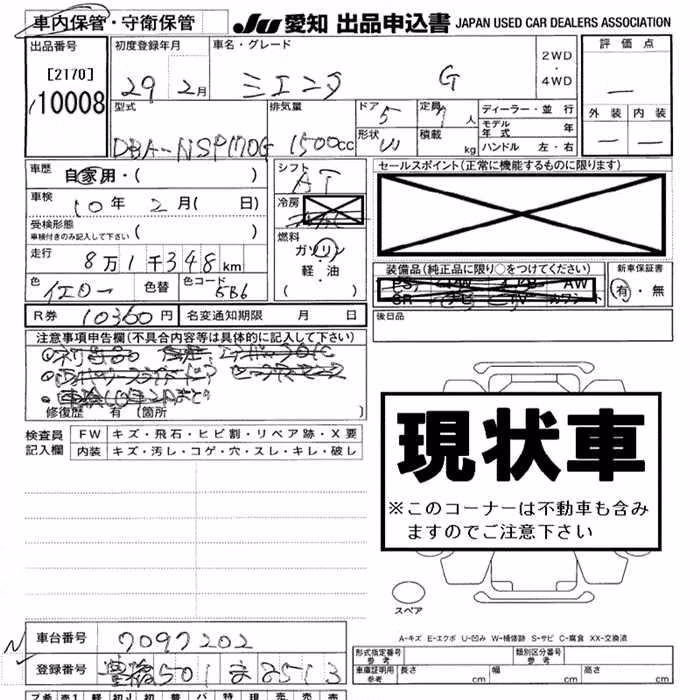 車内保管・守衛保管
JU 愛知 出品申込書 JAPAN USED CAR DEALERS ASSOCIATION
出品番号 初度登録年月 車名・グレード 2WD・4WD 評価点
[2170] 29 2月 シエンタ G —
10008
型式 排気量 ドア 5 定員 7人 ディーラー・並 行 外装 内装
モデル年式 年
DBA-NSP170G 1500cc 形状 W 積載 kg ハンドル 左・右 — —
車歴 自家用・( ) シフト AT セールスポイント(正常に機能するものに限ります)
車検 10年 2月( 日) 冷房
受検形態
車検付きのみ記入して下さい ( ) 燃料 ガソリン・軽・油 ( )
走行 8万1千348km 装備品(純正品に限り○をつけてください) 新車保証書
色 イエロー 色替 色コード 5B6 PS PW AW SR ナビ TV カワシート 有・無
R券 10360円 名変通知期限 月 日 後日品
注意事項申告欄(不具合内容等は具体的に記入して下さい)
修復歴 有(箇所 )
検査員記入欄 FW キズ・飛石・ヒビ割・リペア跡・X要
内装 キズ・汚レ・コゲ・穴・スレ・キレ・破レ
現状車
※このコーナーは不動車も含み
ますのでご注意下さい
スペア
A-キズ E-エクボ U-凹み W-補修跡 S-サビ C-腐食 XX-交換済
車台番号 7097202
登録番号 豊橋501ま3513
形式指定番号 参考 類別区分番号 参考
車庫証明用 参考 長さ cm 幅 cm 高さ cm